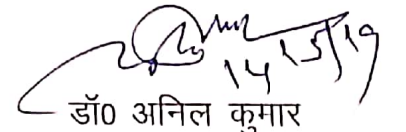 14/5/19
डॉ0 अनिल कुमार